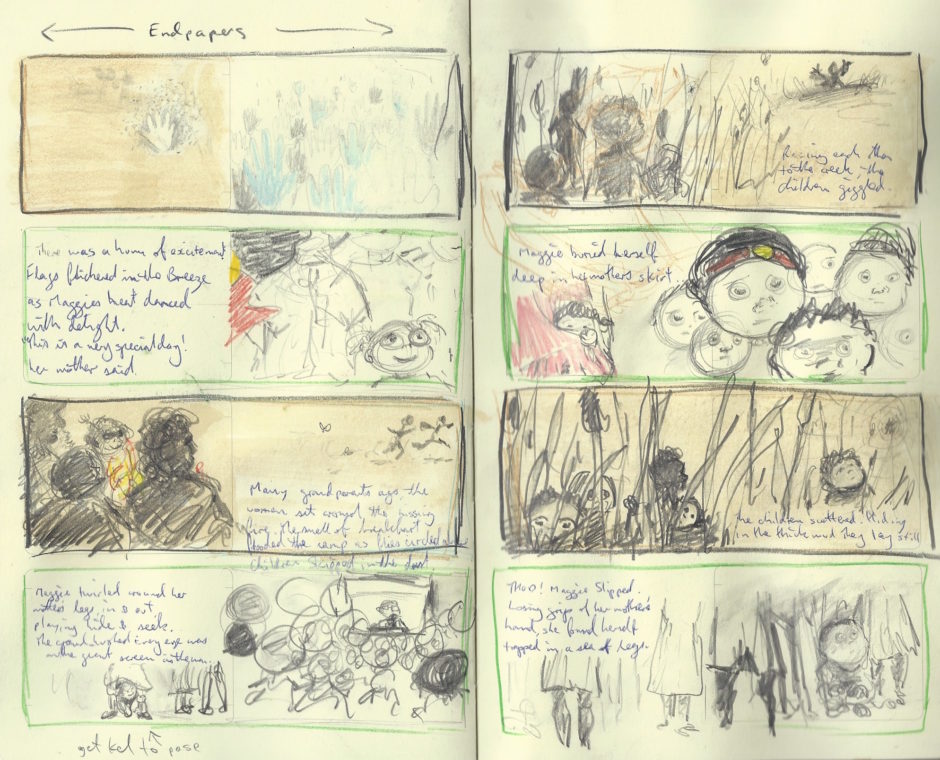 Endpapers
There was a hum of excitement
Flags flickered in the Breeze
as Maggies heart danced
with delight.
"This is a very special day!
her mother said.
Many grandparents ago, the
women sat around the hissing
fire. The smell of
flooded the camp as flies circled
children skipped in the dust
Maggie twirled around her
mothers legs, in & out
playing hide & seek.
The crowd hushed. Every eye was
on the giant screen
get kel to pose
Racing each other
to the creek the
children giggled.
Maggie buried herself
deep in her mothers skirt
The children scattered. Hiding
in the thick mud they lay still
THUD! Maggie Slipped.
Losing grip of her mother's
hand, she found herself
trapped in a sea of legs.